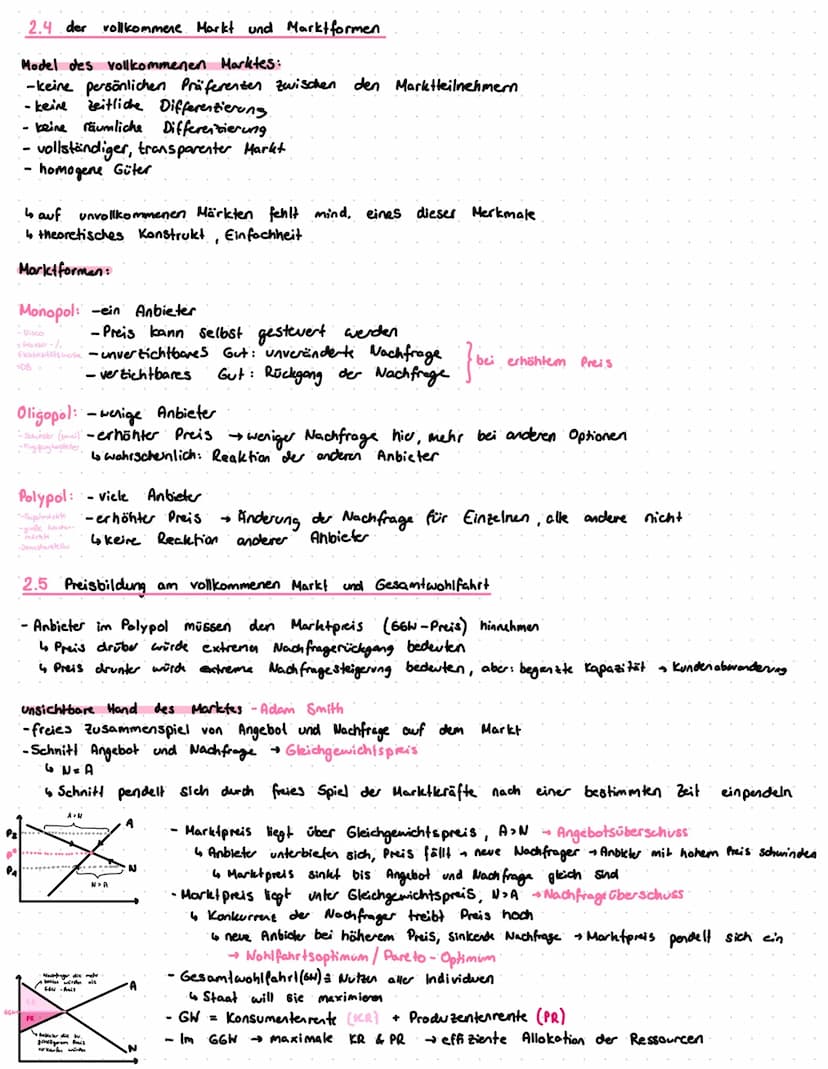 2.4 der vollkommene Markt und Marktformen
Model des vollkommenen Marktes:
- keine persönlichen Präferenzen zwischen den Marktteilnehmern
- keine zeitliche Differenzierung
- keine räumliche Differenzierung
- vollständiger, transparenter Markt
- homogene Güter
↳ auf unvollkommenen Märkten fehlt mind. eines dieser Merkmale
↳ theoretisches Konstrukt, Einfachheit
Marktformen:
Monopol: - ein Anbieter
- Preis kann selbst gesteuert werden
- unverzichtbares Gut: unveränderte Nachfrage
- verzichtbares Gut: Rückgang der Nachfrage } bei erhöhtem Preis
- DB
Oligopol: - wenige Anbieter
- erhöhter Preis → weniger Nachfrage hier, mehr bei anderen Optionen
↳ wahrscheinlich: Reaktion der anderen Anbieter
Polypol: - viele Anbieter
- erhöhter Preis → Änderung der Nachfrage für Einzelnen, alle andere nicht
↳ keine Reaktion anderer Anbieter
2.5 Preisbildung am vollkommenen Markt und Gesamtwohlfahrt
- Anbieter im Polypol müssen den Marktpreis (GGW-Preis) hinnehmen
↳ Preis drüber würde extremen Nachfragerückgang bedeuten
↳ Preis drunter würde extreme Nachfragesteigerung bedeuten, aber: begrenzte Kapazität → Kundenabwanderung
unsichtbare Hand des Marktes - Adam Smith
- freies Zusammenspiel von Angebot und Nachfrage auf dem Markt
- Schnitt Angebot und Nachfrage → Gleichgewichtspreis
↳ N = A
↳ Schnitt pendelt sich durch freies Spiel der Marktkräfte nach einer bestimmten Zeit einpendeln
A>N
A
P2
P*
P1
N
N>A
- Marktpreis liegt über Gleichgewichtspreis, A>N → Angebotsüberschuss
↳ Anbieter unterbieten sich, Preis fällt → neue Nachfrager → Anbieter mit hohem Preis schwinden
↳ Marktpreis sinkt bis Angebot und Nachfrage gleich sind
- Marktpreis liegt unter Gleichgewichtspreis, N>A → Nachfrageüberschuss
↳ Konkurrenz der Nachfrager treibt Preis hoch
↳ neue Anbieter bei höherem Preis, sinkende Nachfrage → Marktpreis pendelt sich ein
→ Wohlfahrtsoptimum / Pareto-Optimum
A
KR
PR
N
- Gesamtwohlfahrt (GW) ≙ Nutzen aller Individuen
↳ Staat will sie maximieren
- GW = Konsumentenrente (KR) + Produzentenrente (PR)
- Im GGW → maximale KR & PR → effiziente Allokation der Ressourcen